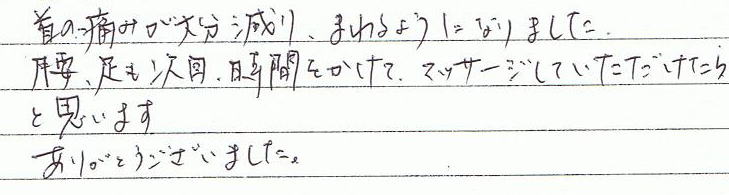 首の痛みが大分減り、まわるようになりました。
腰、足も次回、時間をかけて、マッサージしていただけたら
と思います
ありがとうございました。